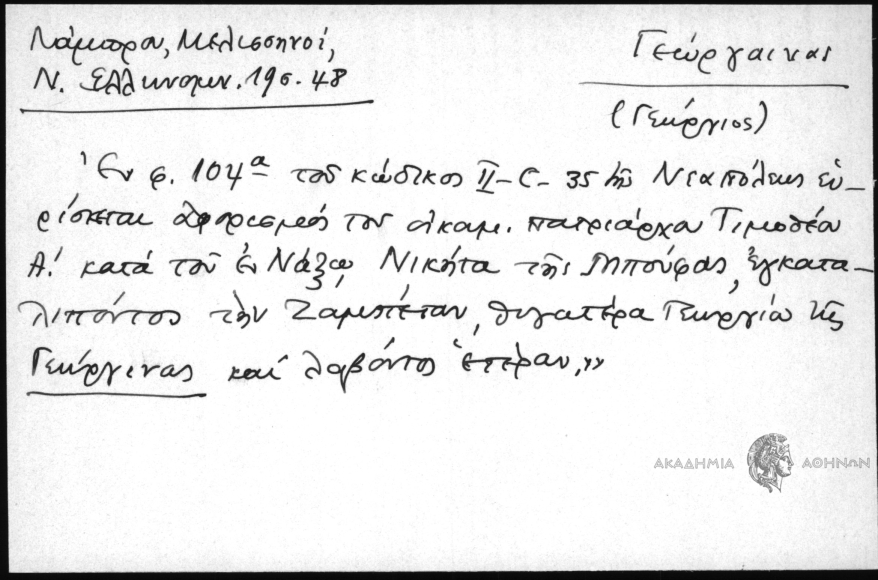 Λάμπρου, Μελισσηνοί,
Ν. Ελληνομν. 19σ. 48
Γεώργαινας
(Γεώργιος)
Ἐν φ. 104α τοῦ κώδικος ΙΙ-C-35 τῆς Νεαπόλεως εὑ-
ρίσκεται ἀφορισμός του οἰκουμ. πατριάρχου Τιμοθέου
Α! κατά τοῦ ἐν Νάξῳ Νικήτα τῆς Μπούφας, ἐγκατα-
λιπόντος τὴν Ζαμπέταν, θυγατέρα Γεωργίου τῆς
Γεώργενας καί λαβόντος ἑτέραν,»
ΑΚΑΔΗΜΙΑ ΑΘΗΝΩΝ